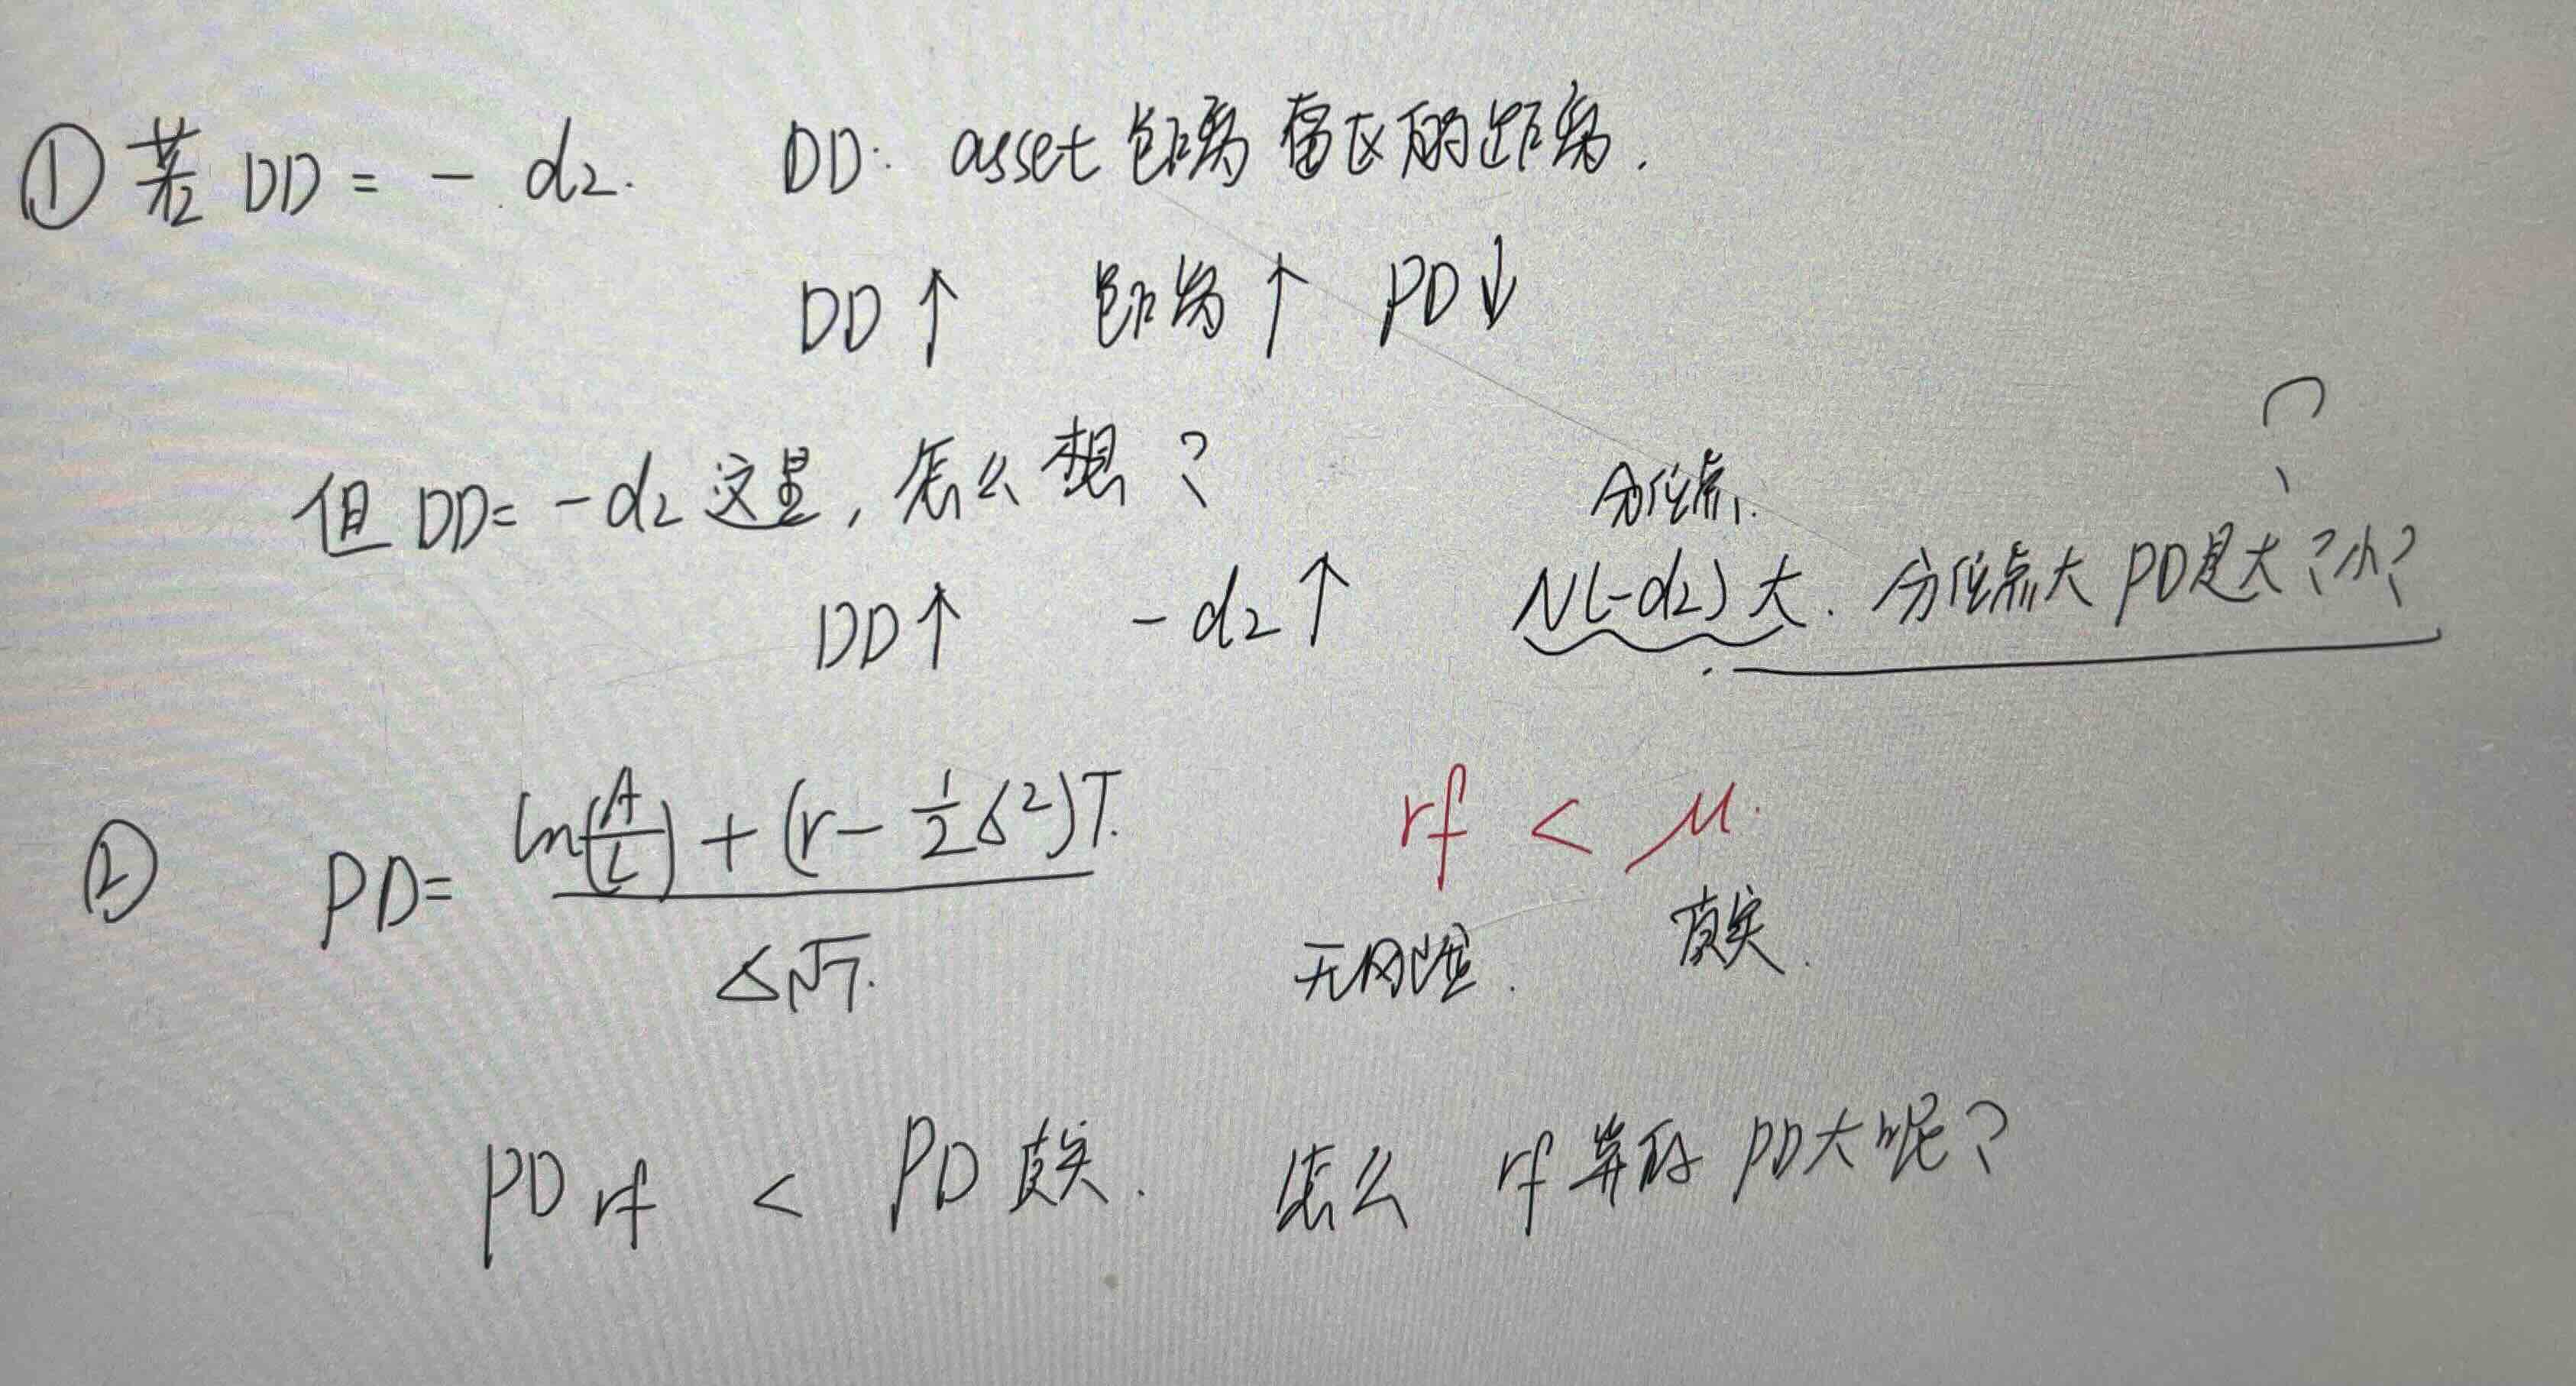 ① 若 DD = - d₂. DD: asset 距离 的距离.
DD ↑ 距离 ↑ PD ↓
但 DD = -d₂ 这里, 怎么想?
分位点.
DD ↑ -d₂ ↑ N(-d₂) 大. 分位点大 PD是大?小? ?
② PD = (ln(A/L) + (r - 1/2 σ²)T.) / (σ√T.)
rf < μ.
无风险. 真实.
PD rf < PD 真实. 怎么 rf 算的 PD大呢?